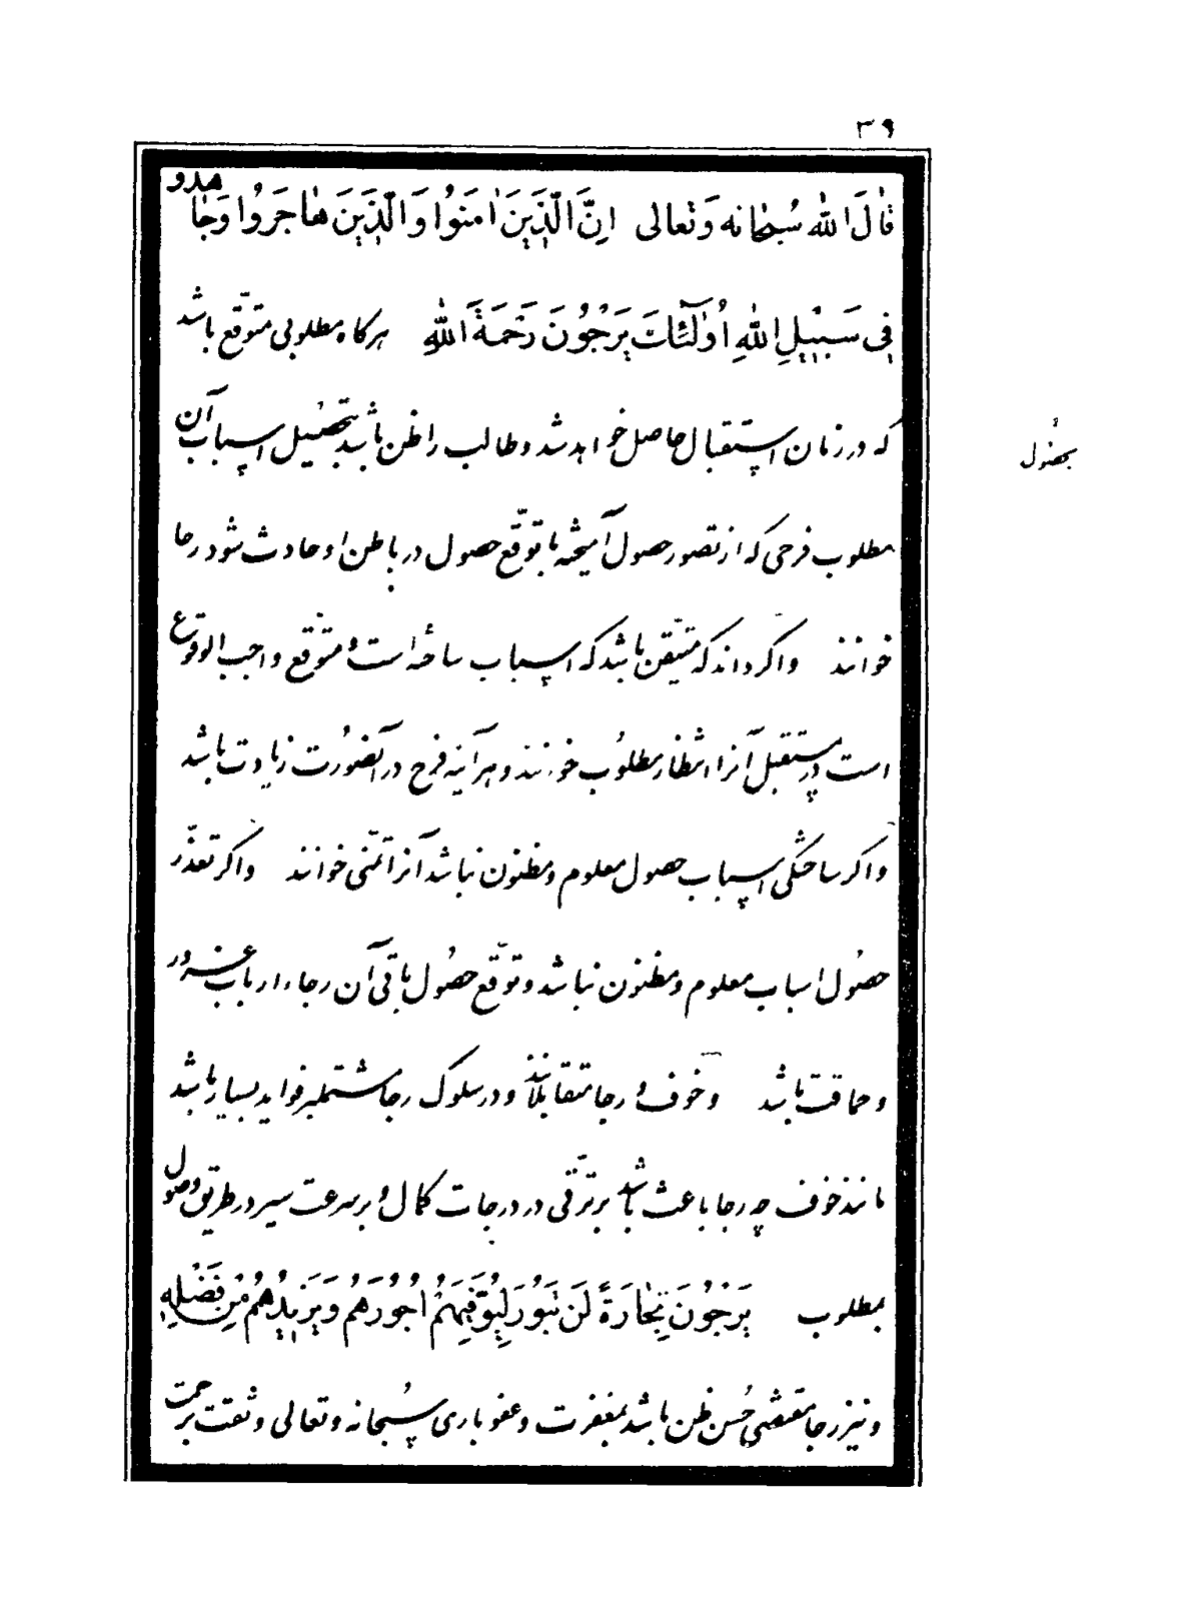 ۳۹
قالَ اللهُ سُبحانه وَتَعالی اِنَّ الَّذینَ اٰمَنوُا وَالَّذینَ هاجَروُا وَجاهدو
فی سَبیلِ اللهِ اُولٰئكَ یَرجُونَ رَحمَةَ اللهِ هرکاه مطلوبی متوقّع باشد
که در زمان استقبال حاصل خواهد شد و طالب را ظن باشد بتحصیل اسباب آن
بحصُول
مطلوب فرحی که از تصور حصول آمیخته با توقّع حصول در باطن او حادث شود رجا
خوانند و اکر داند که متیقن باشد که اسباب ساخته است و متوقع واجب الوقوع
است در مستقبل آنرا انتظار مطلوب خوانند و هر آینه فرح در آنصُورت زیادت باشد
و اکر ساختکی اسباب حصول معلوم و مظنون نباشد آنرا تمنّی خوانند و اکر تعذّر
حصُول اسباب معلوم و مظنون نباشد و توقّع حصُول باقی آن رجاء ارباب غرور
و حماقت باشد و خوف و رجا متقابلانند و در سلوک رجا مشتملبر فواید بسیار باشد
مانند خوف چه رجا باعث باشد بر ترقّی در درجات کمال و بر سرعت سیر در طریق وصول
بمطلوب یَرجُونَ تِجارَةً لَن تَبُورَ لِیُوَفّیَهُم اُجُورَهُم وَیَزیدُهُم مِن فَضلِهِ
و نیز رجا مقتضی حُسن ظن باشد بمغفرت و عفو باری سُبحانه و تعالی و ثقت برحمت